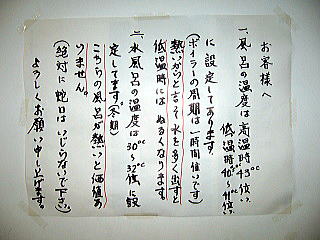 お客様へ
一、風呂の温度は 高温時43°C位い
低温時40°C〜41°C位い
に設定してあります。
(ボイラーの周期は一時間位いです)
熱いからと言そ水を多く出すと
低温時には ぬるくなります。
二、水風呂の温度は30°C〜32°C位に設
定してます。(冬期)
こちらの風呂が熱いと価値あ
りません。
(絶対に蛇口はいじらないで下さい)
よろしくお願い申し上げます。